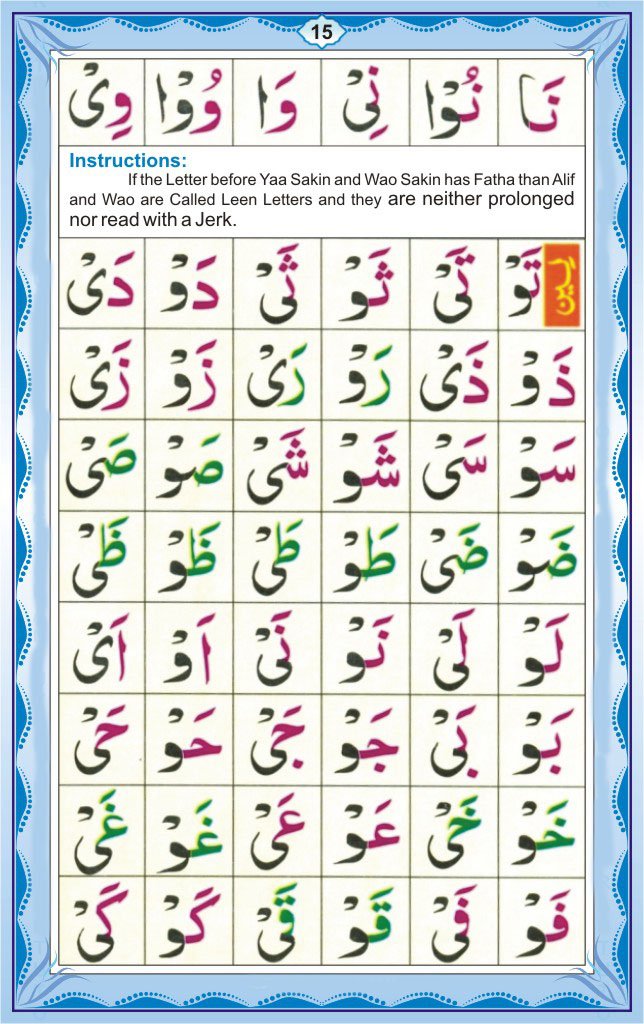 15
نَا نُوْا نِیْ وَا وُوْا وِیْ
Instructions:
If the Letter before Yaa Sakin and Wao Sakin has Fatha than Alif
and Wao are Called Leen Letters and they are neither prolonged
nor read with a Jerk.
لین تَوْ تَیْ ثَوْ ثَیْ دَوْ دَیْ
ذَوْ ذَیْ رَوْ رَیْ زَوْ زَیْ
سَوْ سَیْ شَوْ شَیْ صَوْ صَیْ
ضَوْ ضَیْ طَوْ طَیْ ظَوْ ظَیْ
لَوْ لَیْ نَوْ نَیْ اَوْ اَیْ
بَوْ بَیْ جَوْ جَیْ حَوْ حَیْ
خَوْ خَیْ عَوْ عَیْ غَوْ غَیْ
فَوْ فَیْ قَوْ قَیْ کَوْ کَیْ